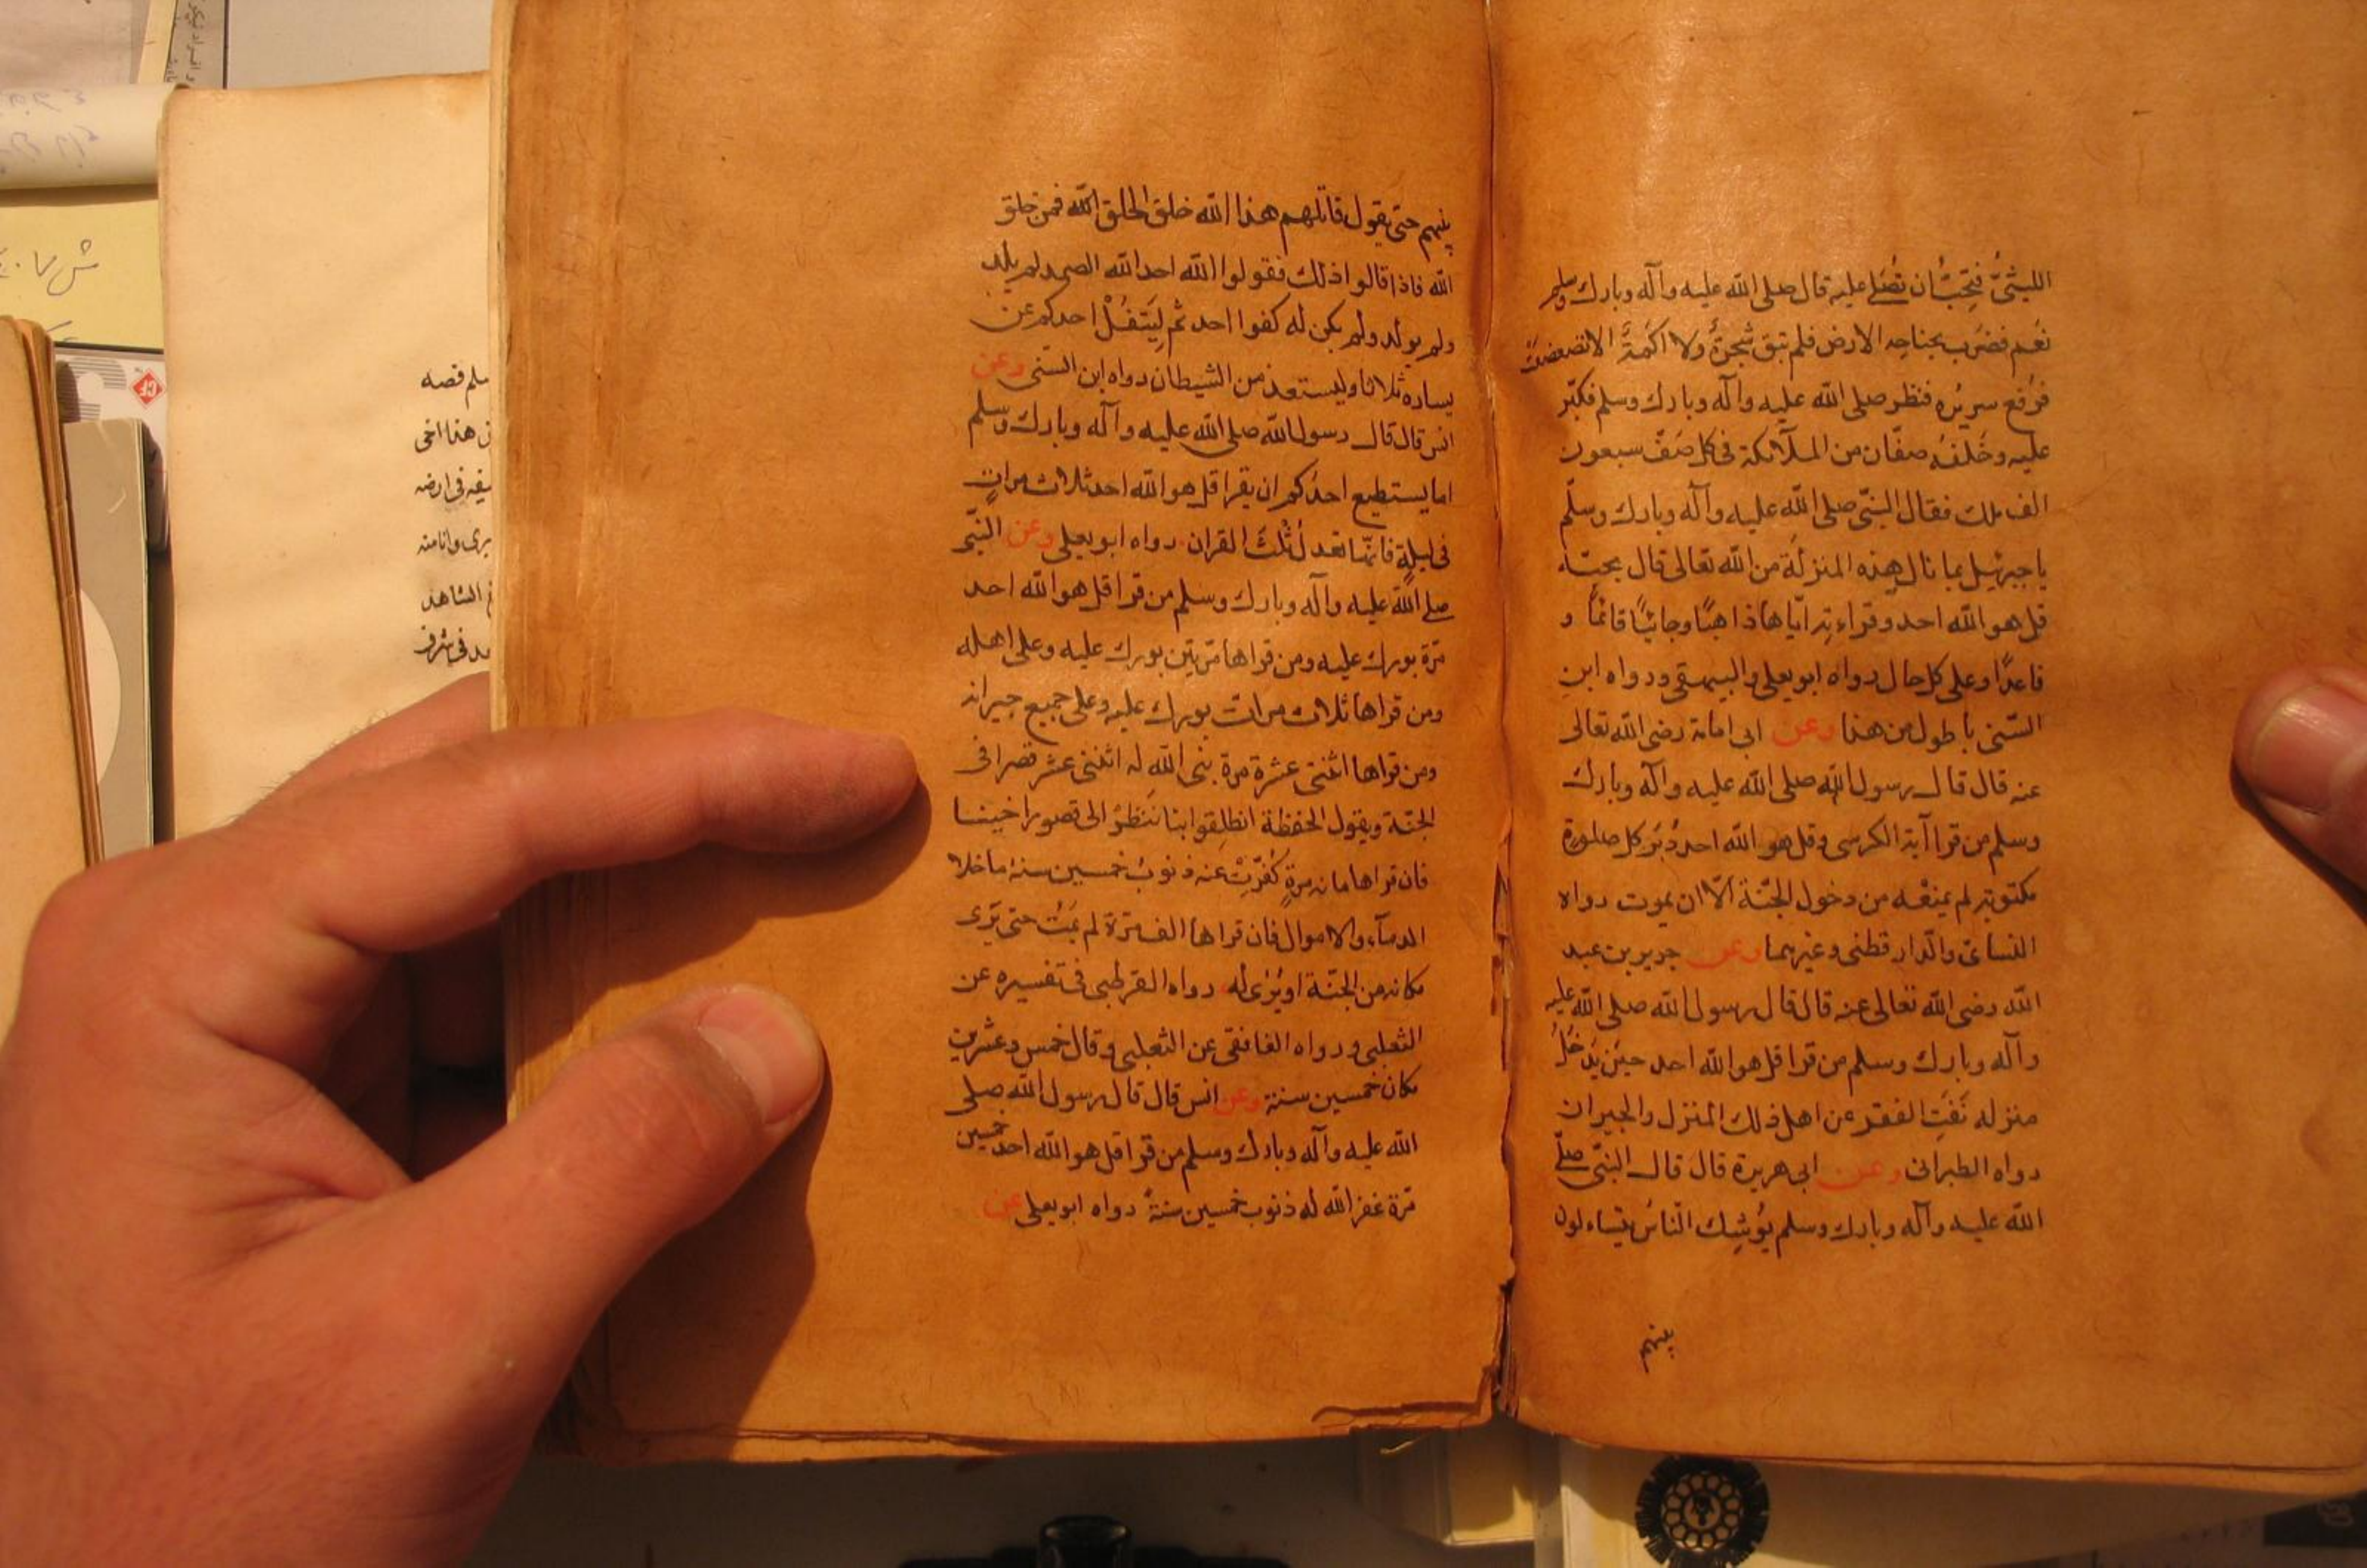 الليثىُّ فتحبُّ ان تُصَلے عليه قال صلى الله عليه وآله وبارك وسلم
نعَم فضرَب بجناحِه الارض فلم تبق شجرةٌ ولا اكمَةٌ الا تضعضعتْ
فرُفع سريرُه فنظر صلى الله عليه وآله وبارك وسلم فكبّر
عليه وخَلفهُ صفّان من الملآئكة فى كل صَفّ سبعون
الف ملك فقال النبّى صلى الله عليه وآله وبارك وسلّم
يا جبرئيل بما نال هذه المنزلَة من الله تعالى قال بحبّه
قل هو الله احد وقراءته ايّاها ذاهبًا وجائيًا قائمًا و
قاعدًا وعلى كل حال رواه ابو يعلى والبيهقى ورواه ابن
السّنى باطول من هذا وعن ابى امامة رضى الله تعالى
عنه قال قال رسول الله صلى الله عليه وآله وبارك
وسلم من قرا آية الكرسى وقل هو الله احد دُبُر كل صلوةٍ
مكتوبة لم يمنعْه من دخول الجنّة الّا ان يموت رواه
النسائى والدّارقطنى وغيرهما وعن جرير بن عبد
الله رضى الله تعالى عنه قال قال رسول الله صلى الله عليه
وآله وبارك وسلم من قرا قل هو الله احد حين يَدخُلُ
منزله نَفَتِ الفقر عن اهل ذلك المنزل والجيران
رواه الطبرانى وعن ابى هريرة قال قال النبّى صلّے
الله عليه وآله وبارك وسلم يُوشِك النّاسُ يتساءلون
بينهم
بينهم حتى يقول قائلهم هذا الله خلق الخلق الله فمن خلق
الله فاذا قالوا ذلك فقولوا الله احد الله الصمد لم يلد
ولم يولد ولم يكن له كفوا احد ثم لِيَتفُلْ احدكم عن
يساره ثلاثا وليستعذ من الشيطان رواه ابن السّنى وعن
انس قال قال رسول الله صلى الله عليه وآله وبارك وسلم
اما يستطيع احدُكم ان يقرا قل هو الله احد ثلاث مراتٍ
فى ليلةٍ فانّها تعدل ثُلُثَ القران رواه ابو يعلى وعن النّبى
صلے الله عليه وآله وبارك وسلم من قرا قل هو الله احد
مرّة بورك عليه ومن قراها مرّتين بورك عليه وعلى اهله
ومن قراها ثلاث مرات بورك عليه وعلى جميع جيرانه
ومن قراها اثنتى عشرة مرة بنى الله له اثنى عشر قصرا فى
الجنّة ويقول الحفظة انطلِقوا بنا ننظُرْ الى قصور اخينا
فان قراها مائة مرةٍ كُفّرَتْ عنه ذنوبُ خمسين سنة ما خلا
الدمآء والاموال فان قراها الف مرّة لم يمُتْ حتى يَرى
مكانه من الجنّة او يُرٰى له رواه القرطبى فى تفسيره عن
الثعلبى ورواه الغافقى عن الثعلبى وقال خمس وعشرين
مكان خمسين سنة وعن انس قال قال رسول الله صلى
الله عليه وآله وبارك وسلم من قرا قل هو الله احد خمسين
مرّة غفر الله له ذنوب خمسين سنةً رواه ابو يعلى عن
سلم قصه
هذا اخى
فى ارضه
وانا منه
الشاهد